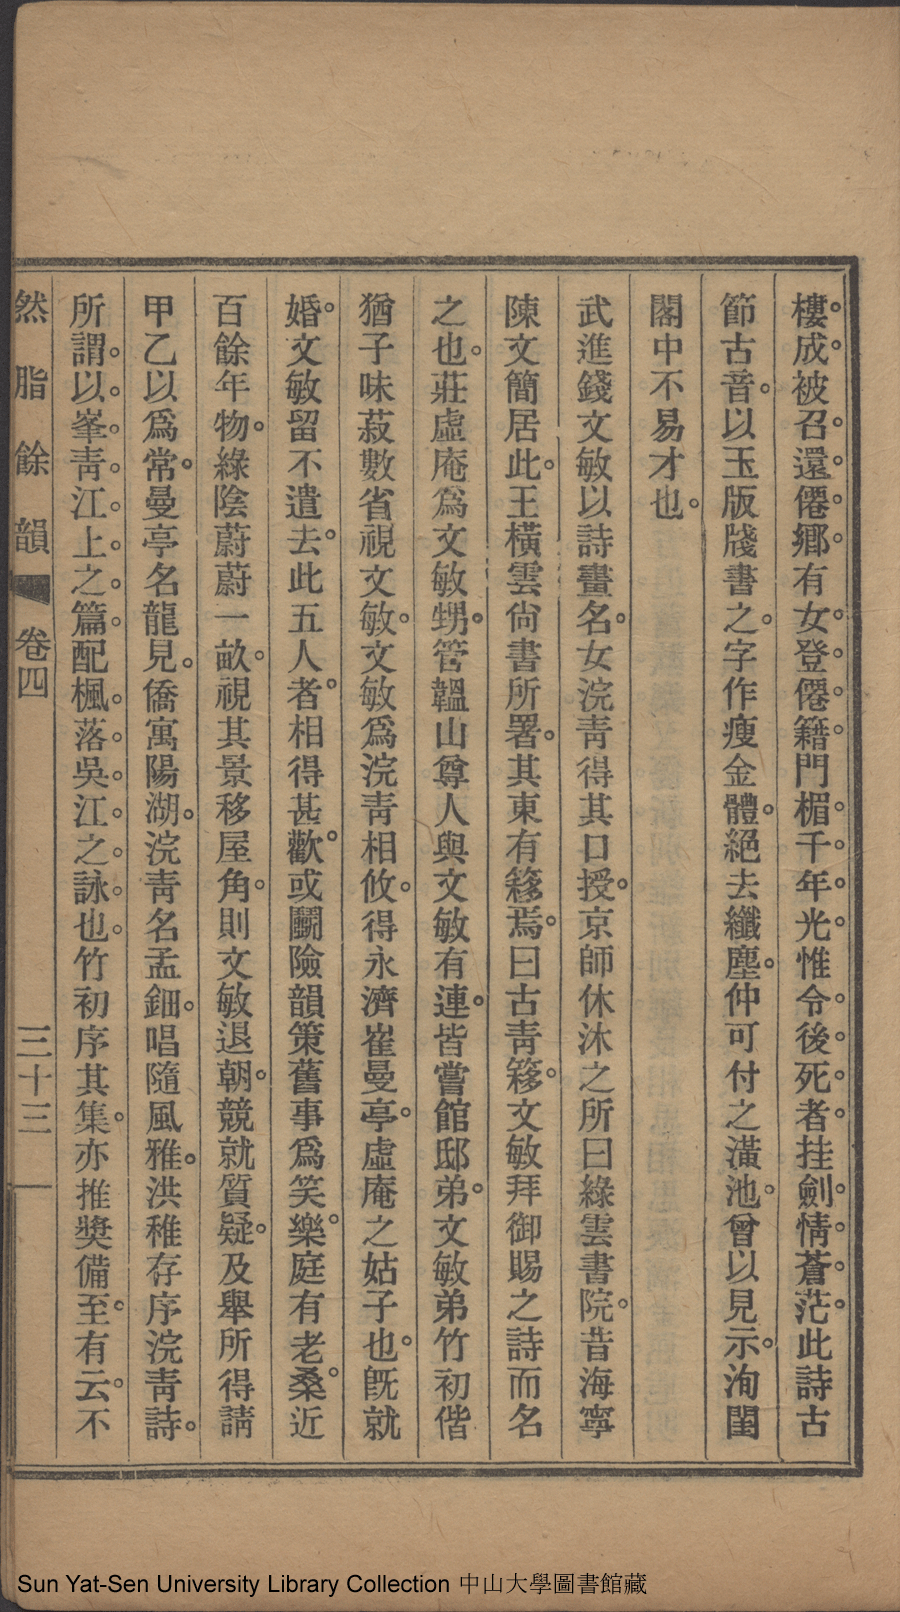 樓。成。被召。還。僊。鄉。有女。登。僊。籍。門楣。千。年。光。惟令。後。死。者。挂劍。情。蒼。茫。此詩古
節古音。以玉版牋書之。字作瘦金體。絕去纖塵。仲可付之潢池。曾以見示。洵閨
閣中不易才也。
武進錢文敏以詩畫名。女浣靑得其口授。京師休沐之所曰綠雲書院。昔海寧
陳文簡居此。王橫雲尙書所署。其東有簃焉。曰古靑簃。文敏拜御賜之詩而名
之也。莊虛庵爲文敏甥。管韞山尊人與文敏有連。皆嘗館邸弟。文敏弟竹初偕
猶子味菽數省視文敏。文敏爲浣靑相攸。得永濟崔曼亭。虛庵之姑子也。旣就
婚。文敏留不遣去。此五人者。相得甚歡。或鬭險韻策舊事爲笑樂。庭有老桑。近
百餘年物。綠陰蔚蔚一畝。視其景移屋角。則文敏退朝。競就質疑。及舉所得請
甲乙以爲常。曼亭名龍見。僑寓陽湖。浣靑名孟鈿。唱隨風雅。洪稚存序浣靑詩。
所謂。以。峯。靑。江。上。之。篇。配楓。落。吳。江。之。詠。也。竹初序其集。亦推獎備至。有云。不
然脂餘韻 卷四 三十三
Sun Yat-Sen University Library Collection 中山大學圖書館藏